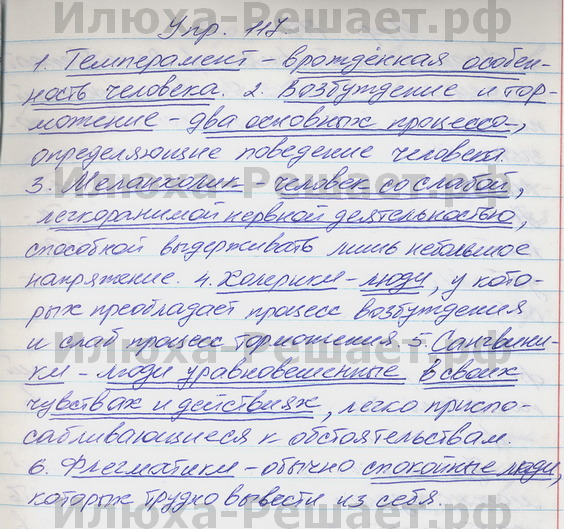 Илюха-Решает.рф
Упр. 117.
1. Темперамент – врождённая особен-
ность человека. 2. Возбуждение и тор-
можение – два основных процесса,
определяющие поведение человека.
3. Меланхолик – человек со слабой,
легкоранимой нервной деятельностью,
способной выдерживать лишь небольшое
напряжение. 4. Холерики – люди, у кото-
рых преобладает процесс возбуждения
и слаб процесс торможения. 5. Сангвини-
Илюха-Решает.рф
ки – люди уравновешенные в своих
чувствах и действиях, легко приспо-
сабливающиеся к обстоятельствам.
6. Флегматики – обычно спокойные люди,
которых трудно вывести из себя.
Илюха-Решает.рф